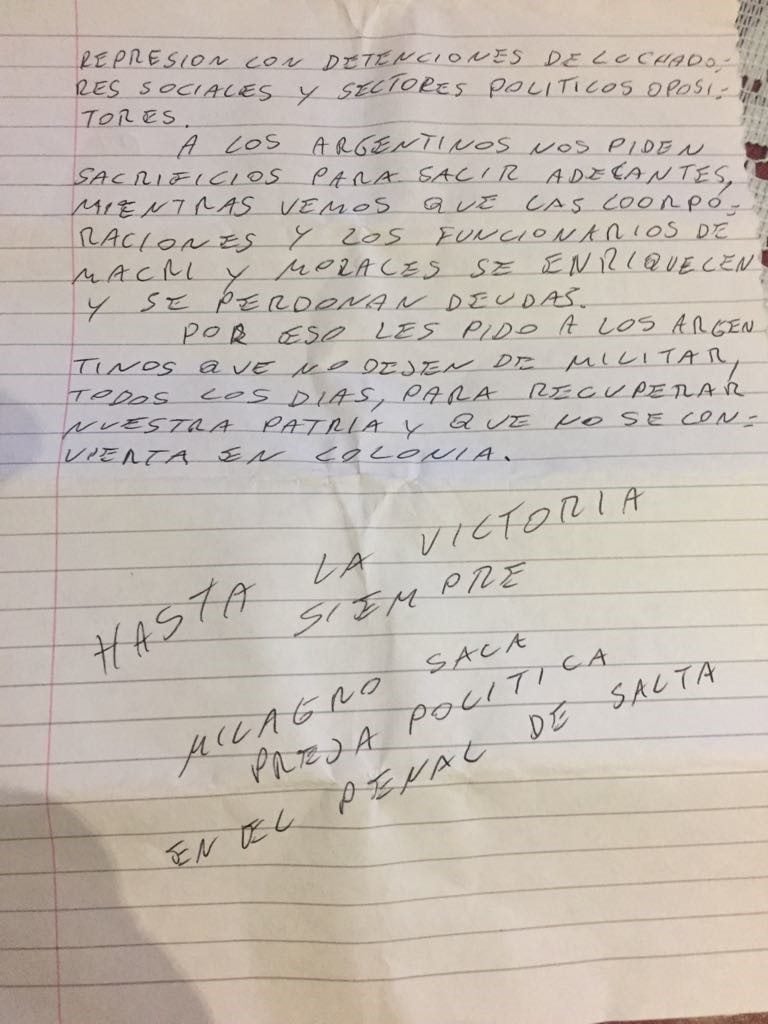 REPRESION CON DETENCIONES DE LUCHADO-
RES SOCIALES Y SECTORES POLITICOS OPOSI-
TORES.
A LOS ARGENTINOS NOS PIDEN
SACRIFICIOS PARA SALIR ADELANTES,
MIENTRAS VEMOS QUE LAS COORPO-
RACIONES Y LOS FUNCIONARIOS DE
MACRI Y MORALES SE ENRIQUECEN
Y SE PERDONAN DEUDAS.
POR ESO LES PIDO A LOS ARGEN
TINOS QUE NO DEJEN DE MILITAR,
TODOS LOS DIAS, PARA RECUPERAR
NUESTRA PATRIA Y QUE NO SE CON-
VIERTA EN COLONIA.
HASTA LA VICTORIA
SIEMPRE
MILAGRO SALA
PRESA POLITICA
EN EL PENAL DE SALTA